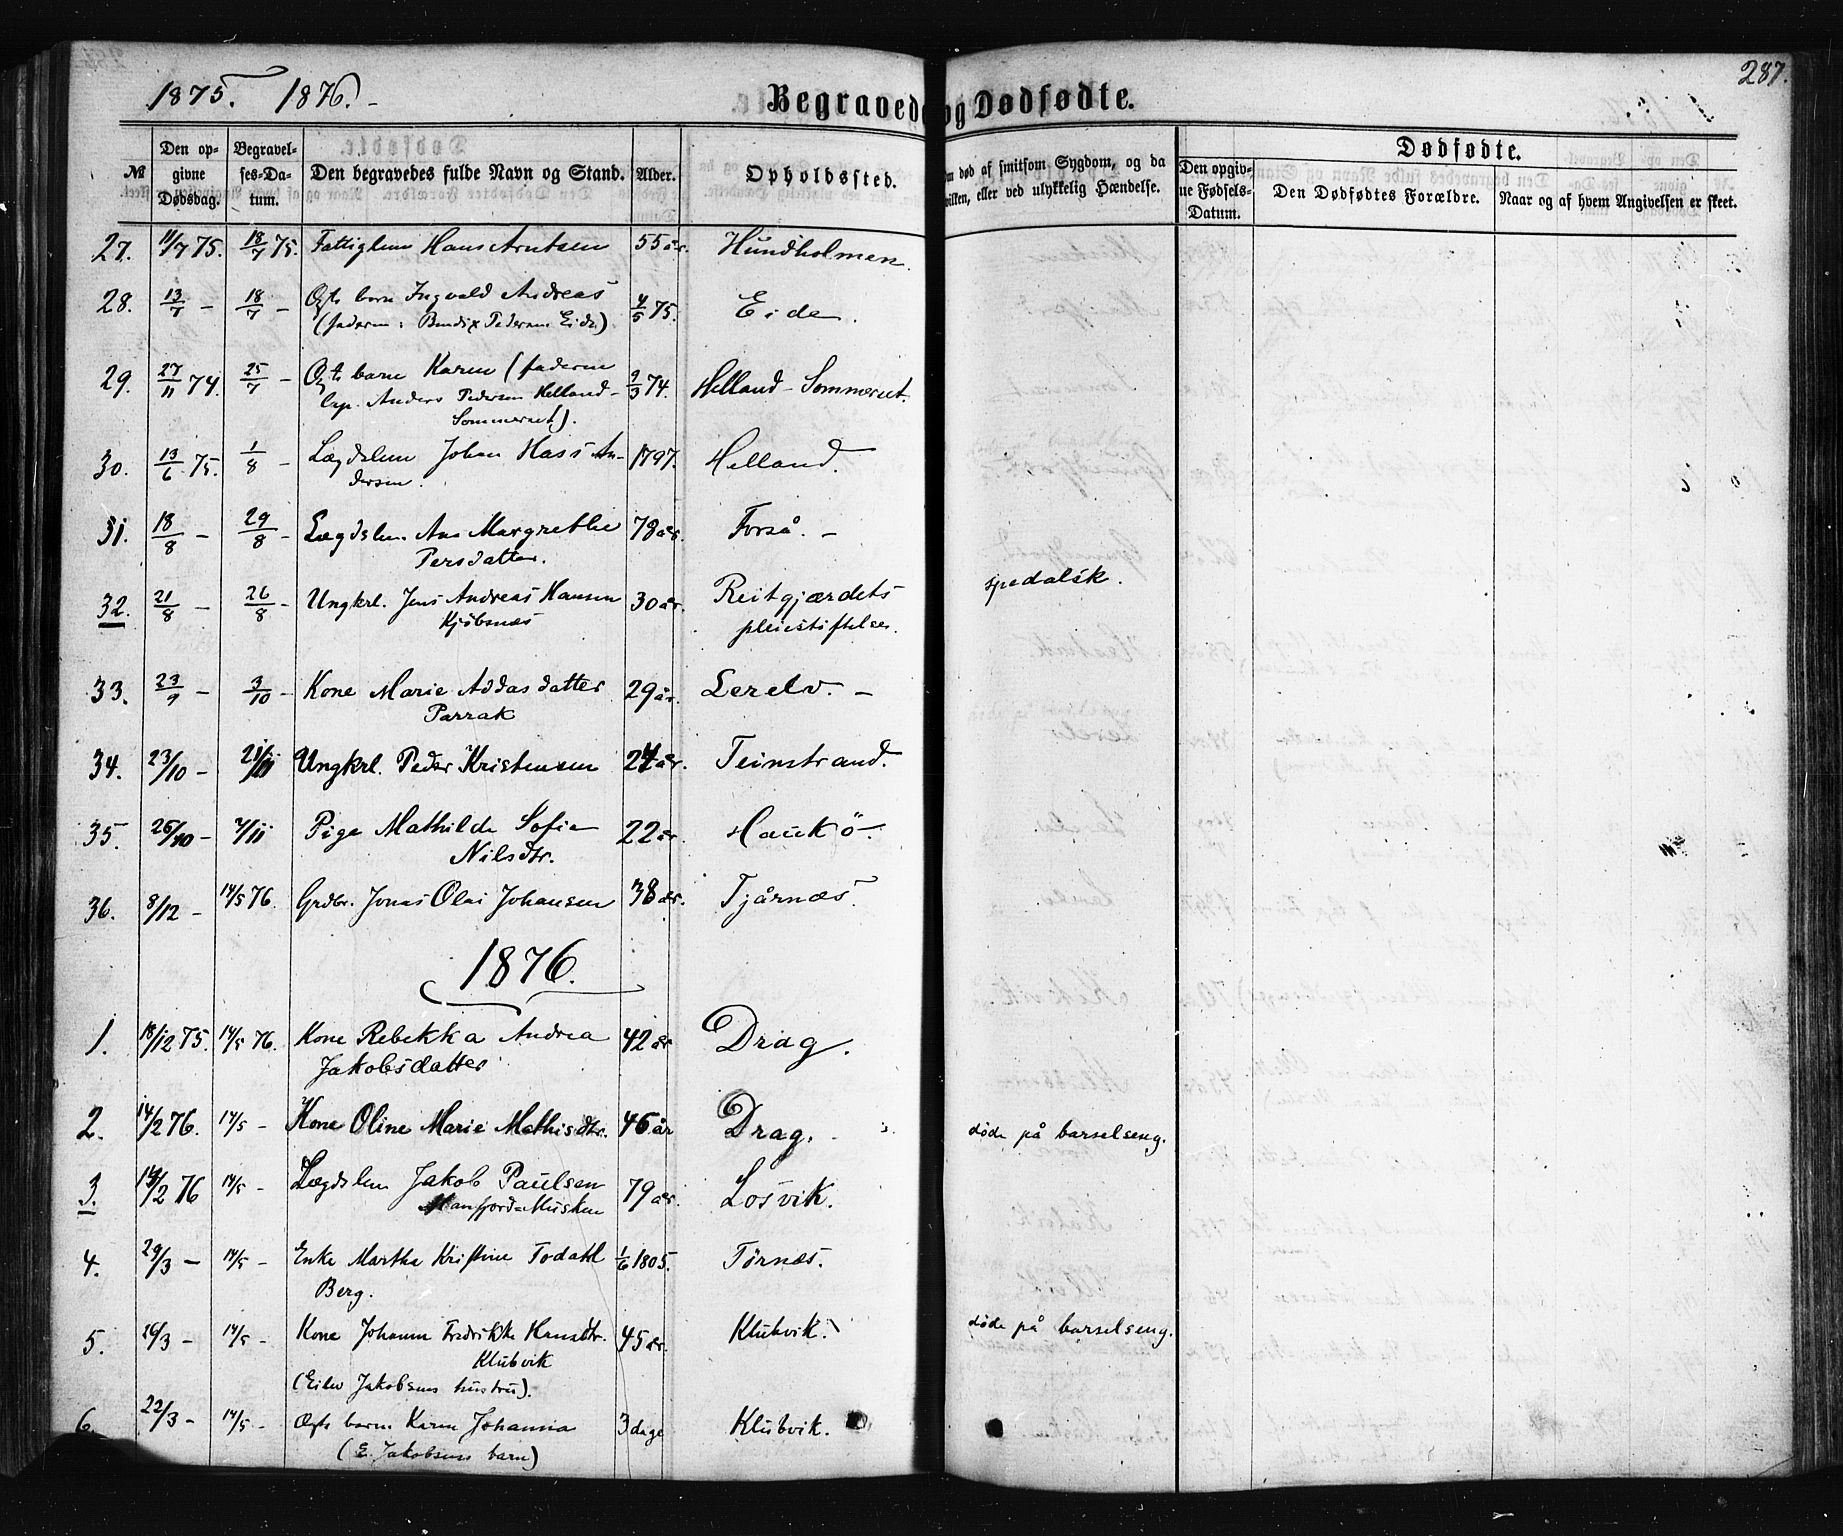 287.
1875. 1876.
Begravede og Dødfødte.
№
Den opgivne Dødsdag.
Begravelses-Datum.
Den begravedes fulde Navn og Stand.
Alder.
Opholdssted.
død af smitsom Sygdom, og da
hvilken, eller ved ulykkelig Hændelse.
Dødfødte.
Den opgivne Fødsels-Datum.
Den Dødfødtes Forældre.
Naar og af hvem Angivelsen er skeet.
27. 11/7 75. 18/7 75. Fattiglem Hans Arntsen 55 år. Hundholmen.
28. 13/7 – 18/7 – Ægte barn Ingvald Andreas 4/5 75. Eide.
(faderen: Bendix Pedersen Eide)
29. 27/11 74. 25/7 – Ægte barn Karen (faderen 2/3 74. Helland-Sommerset.
Anders Pedersen Helland-
Sommerset).
30. 13/6 75. 1/8 – Lægdslem Johan Hass An- 1797. Helland.
dersen.
31. 18/8 – 29/8 – Lægdslem Ane Margrethe 78 år. Forså. –
Persdatter.
32. 21/8 – 26/8 – Ungkrl. Jens Andreas Hansen 30 år. Reitgjærdets spedalsk.
Kjöbsnæs pleiestiftelse.
33. 23/9 – 3/10 – Kone Marie Addasdatter 29 år. Lerelv. –
Parrak
34. 23/10 – 21/11 Ungkrl. Peder Kristensen 24 år. Teinstrand.
35. 26/10 – 7/11 Pige Mathilde Sofie 22 år. Haukö.
Nilsdtr.
36. 8/12 – 14/5 76. Grdbr. Jonas Olai Johansen 38 år. Tjårnæs.
1876.
1. 18/12 75. 14/5 76. Kone Rebekka Andrea 42 år Drag.
Jakobsdatter
2. 14/2 76. 14/5 – Kone Oline Marie Mathisdtr. 46 år Drag. døde på barselseng.
3. 19/2 76 14/5 – Lægdslem Jakob Paulsen 79 år. Losvik.
Manfjord-Musken
4. 29/3 – 14/5 – Enke Martha Kristine Todahl 1/6 1805. Tørnæs.
Berg.
5. 26/3 – 14/5 – Kone Johanna Fredrikke Hansdtr. 45 år. Klubvik. døde på barselseng.
Klubvik
(Eilev Jakobsens hustru).
6. 22/3 – 14/5 – Ægte barn Karen Johanna 3 dage Klubvik.
(E. Jakobsens barn)